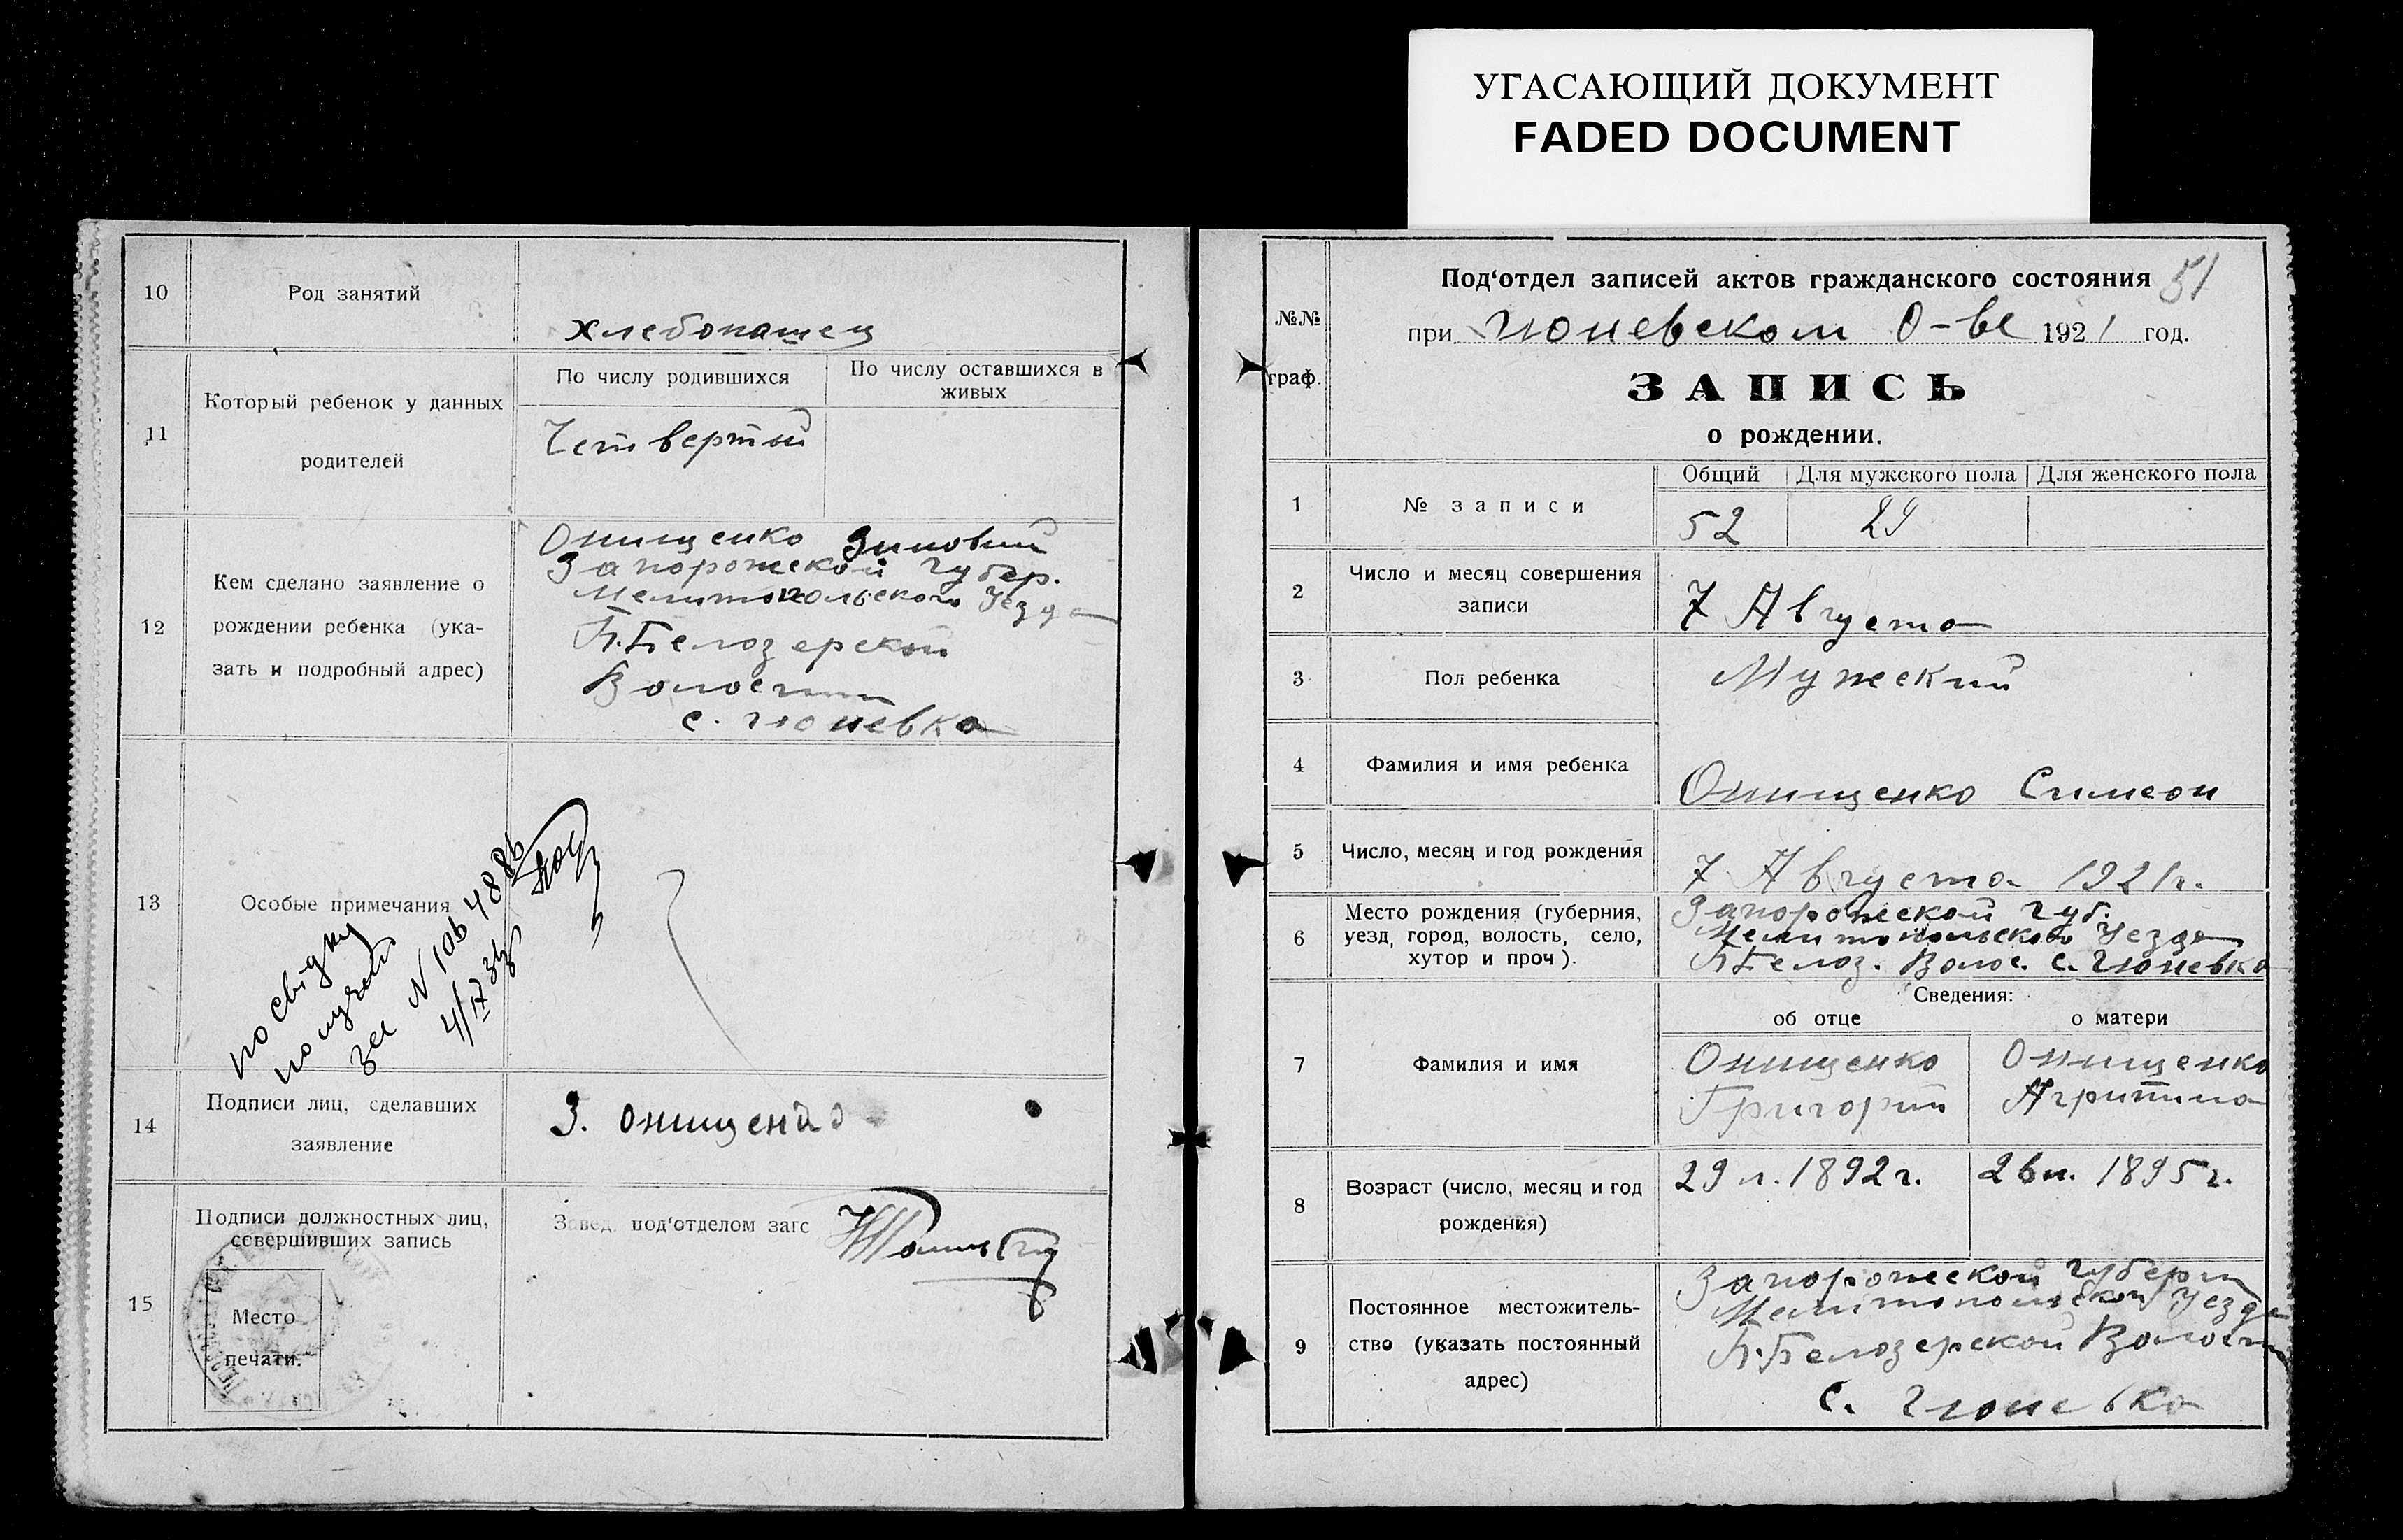 УГАСАЮЩИЙ ДОКУМЕНТ
FADED DOCUMENT
10
Род занятий
хлебопашец
11
Который ребенок у данных
родителей
По числу родившихся
По числу оставшихся в
живых
Четвертый
12
Кем сделано заявление о
рождении ребенка (ука-
зать и подробный адрес)
Онищенко Зиновий
Запорожской Губер.
Мелитопольского Уезда
Б.Белозерской
Волости
с. Гюневка
13
Особые примечания
посвідку
получив
за N 1064886
4/IV 33
14
Подписи лиц, сделавших
заявление
З. Онищенко
15
Подписи должностных лиц,
совершивших запись
Место
печати.
Завед. под‘отделом загс
51
№№
граф.
Под‘отдел записей актов гражданского состояния
при Гюневском О-ве 1921 год.
ЗАПИСЬ
о рождении.
1
№ записи
Общий
Для мужского пола
Для женского пола
52
29
2
Число и месяц совершения
записи
7 Августа
3
Пол ребенка
Мужеский
4
Фамилия и имя ребенка
Онищенко Симеон
5
Число, месяц и год рождения
7 Августа 1921г.
6
Место рождения (губерния,
уезд, город, волость, село,
хутор и проч).
Запорожской губ.
Мелитопольского Уезда
Б Белоз. Волос. с. Гюневка
Сведения:
об отце
о матери
7
Фамилия и имя
Онищенко
Григорий
Онищенко
Агрипина
8
Возраст (число, месяц и год
рождения)
29 л. 1892 г.
26 л. 1895 г.
9
Постоянное местожитель-
ство (указать постоянный
адрес)
Запорожской Губерн
Мелитопольской Уезда
Б.Белозерской Волости
с. Гюневка